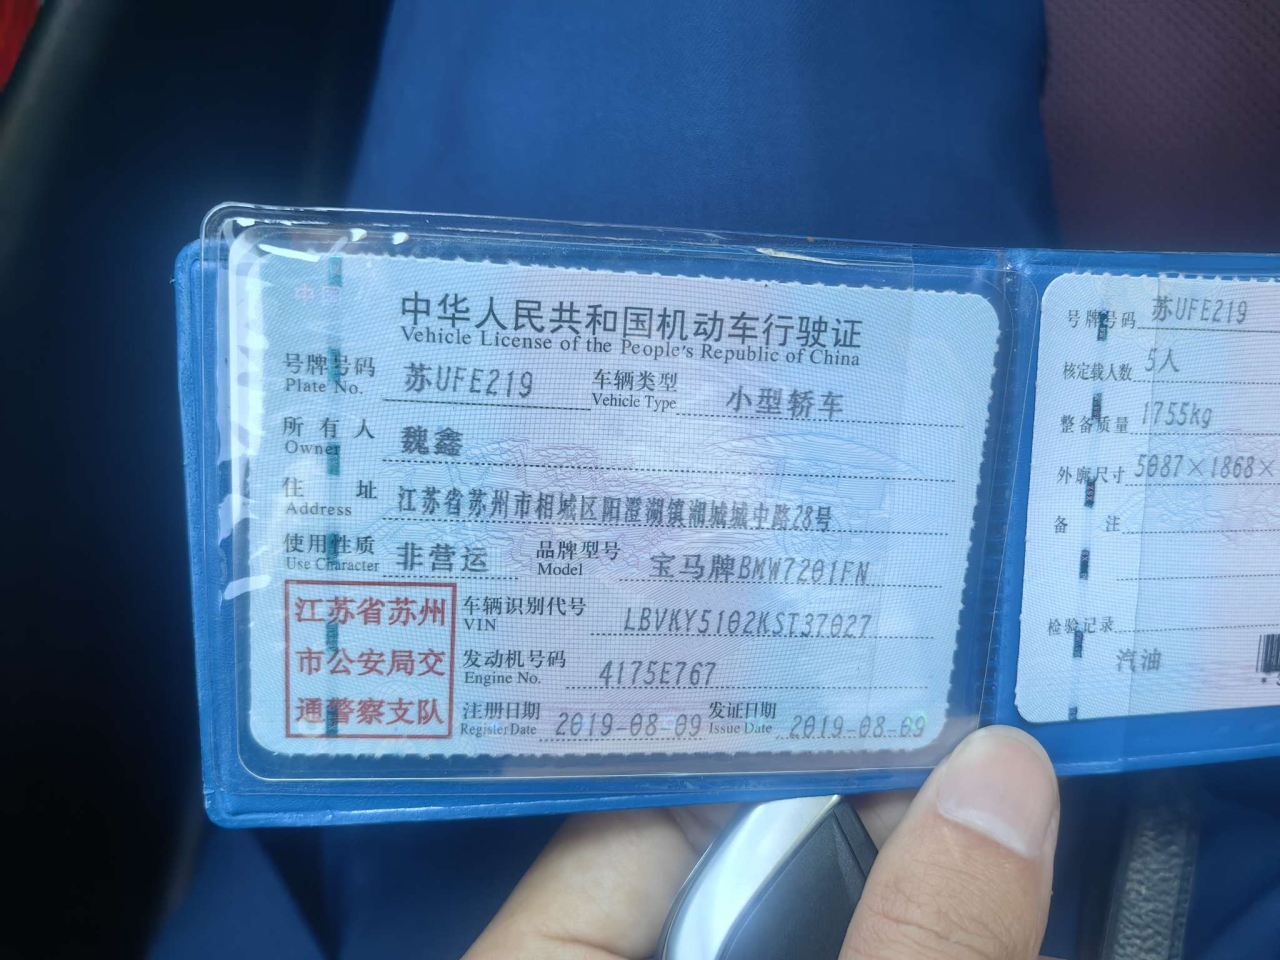 中华人民共和国机动车行驶证
Vehicle License of the People's Republic of China
号牌号码 苏UFE219 车辆类型 小型轿车
Plate No. Vehicle Type
所有人 魏鑫
Owner
住址 江苏省苏州市相城区阳澄湖镇湘城城中路28号
Address
使用性质 非营运 品牌型号 宝马牌BMW7201FN
Use Character Model
江苏省苏州
市公安局交
通警察支队
车辆识别代号 LBVKY5102KST37027
VIN
发动机号码 4175E767
Engine No.
注册日期 2019-08-09 发证日期 2019-08-09
Register Date Issue Date
号牌号码 苏UFE219
核定载人数 5人
整备质量 1755kg
外廓尺寸 5087×1868×
备注
检验记录
汽油